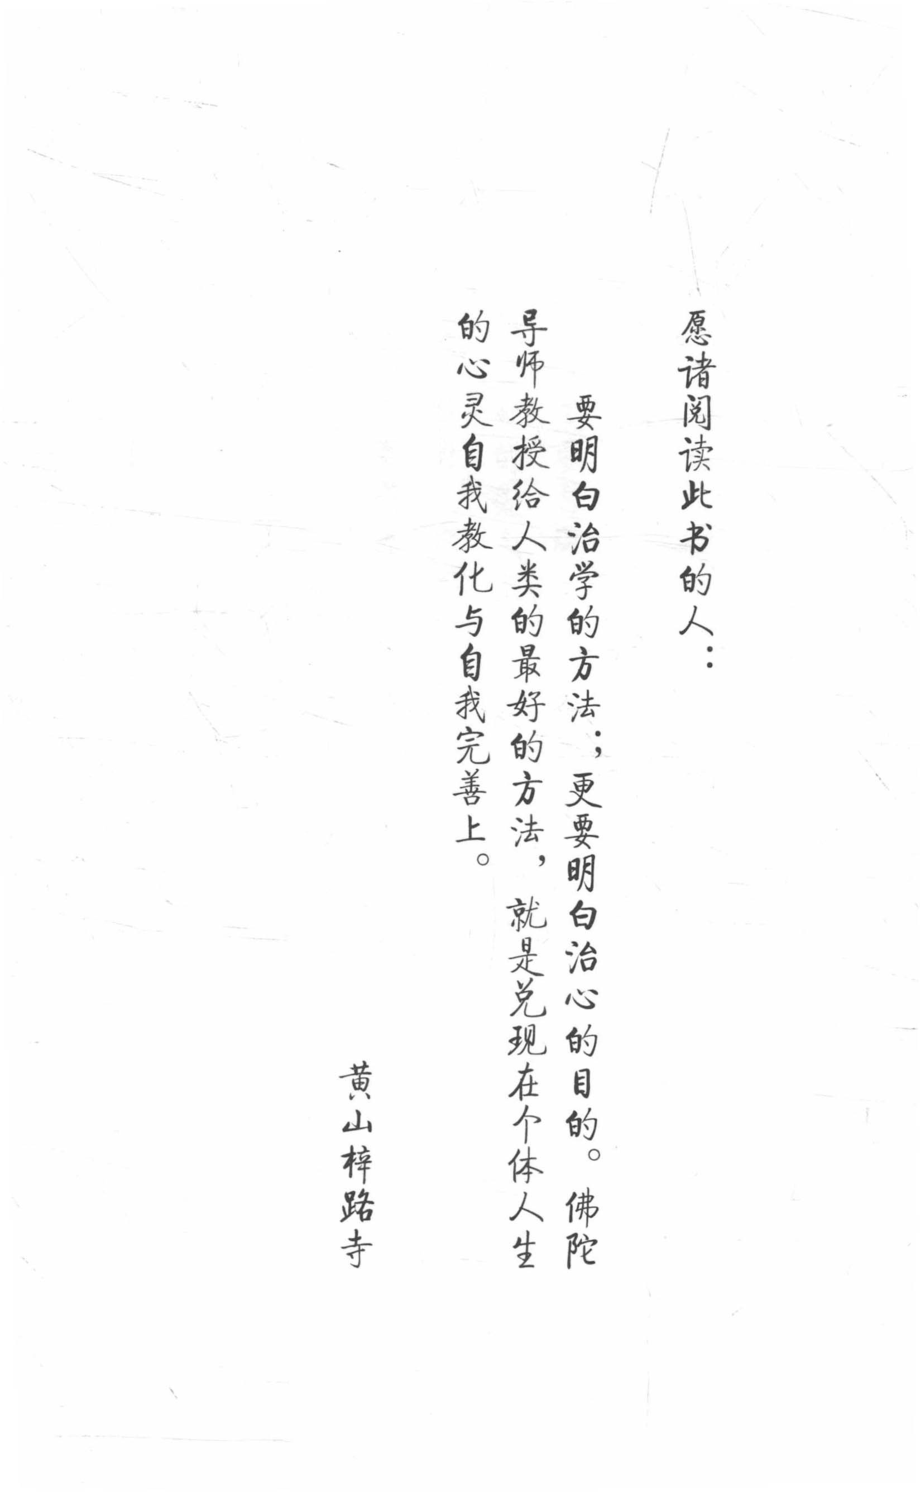 愿诸阅读此书的人：
要明白治学的方法；更要明白治心的目的。佛陀
导师教授给人类的最好的方法，就是兑现在个体人生
的心灵自我教化与自我完善上。
黄山梓路寺